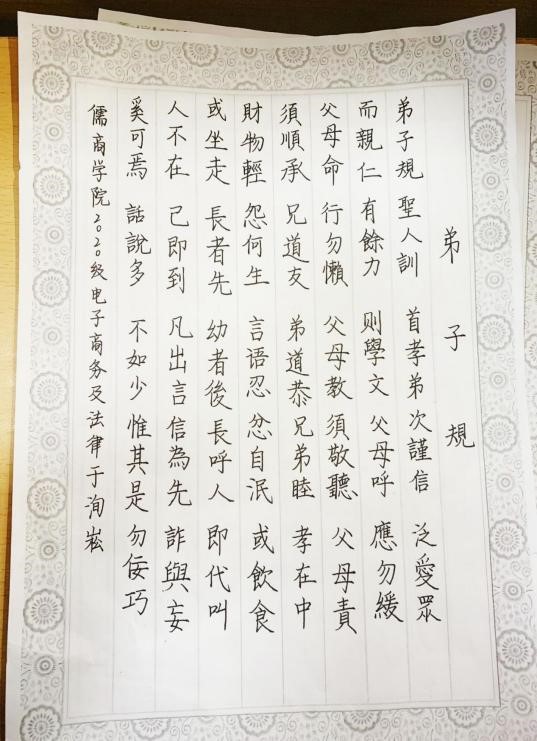 弟子規
弟子規 聖人訓 首孝弟 次謹信 泛愛眾
而親仁 有餘力 则學文 父母呼 應勿緩
父母命 行勿懶 父母教 須敬聽 父母責
須順承 兄道友 弟道恭 兄弟睦 孝在中
財物輕 怨何生 言语忍 忿自泯 或飲食
或坐走 長者先 幼者後 長呼人 即代叫
人不在 己即到 凡出言 信為先 詐與妄
奚可焉 話說多 不如少 惟其是 勿佞巧
儒商学院2020级电子商务及法律于洵崧